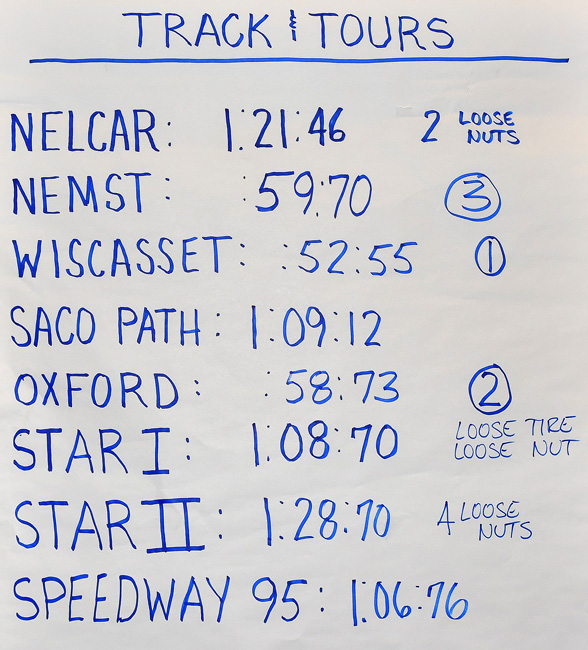 TRACK & TOURS
NELCAR: 1:21:46 2 LOOSE NUTS
NEMST: :59:70 3
WISCASSET: :52:55 1
SACO PATH: 1:09:12
OXFORD: :58:73 2
STAR I: 1:08:70 LOOSE TIRE LOOSE NUT
STAR II: 1:28:70 4 LOOSE NUTS
SPEEDWAY 95: 1:06:76